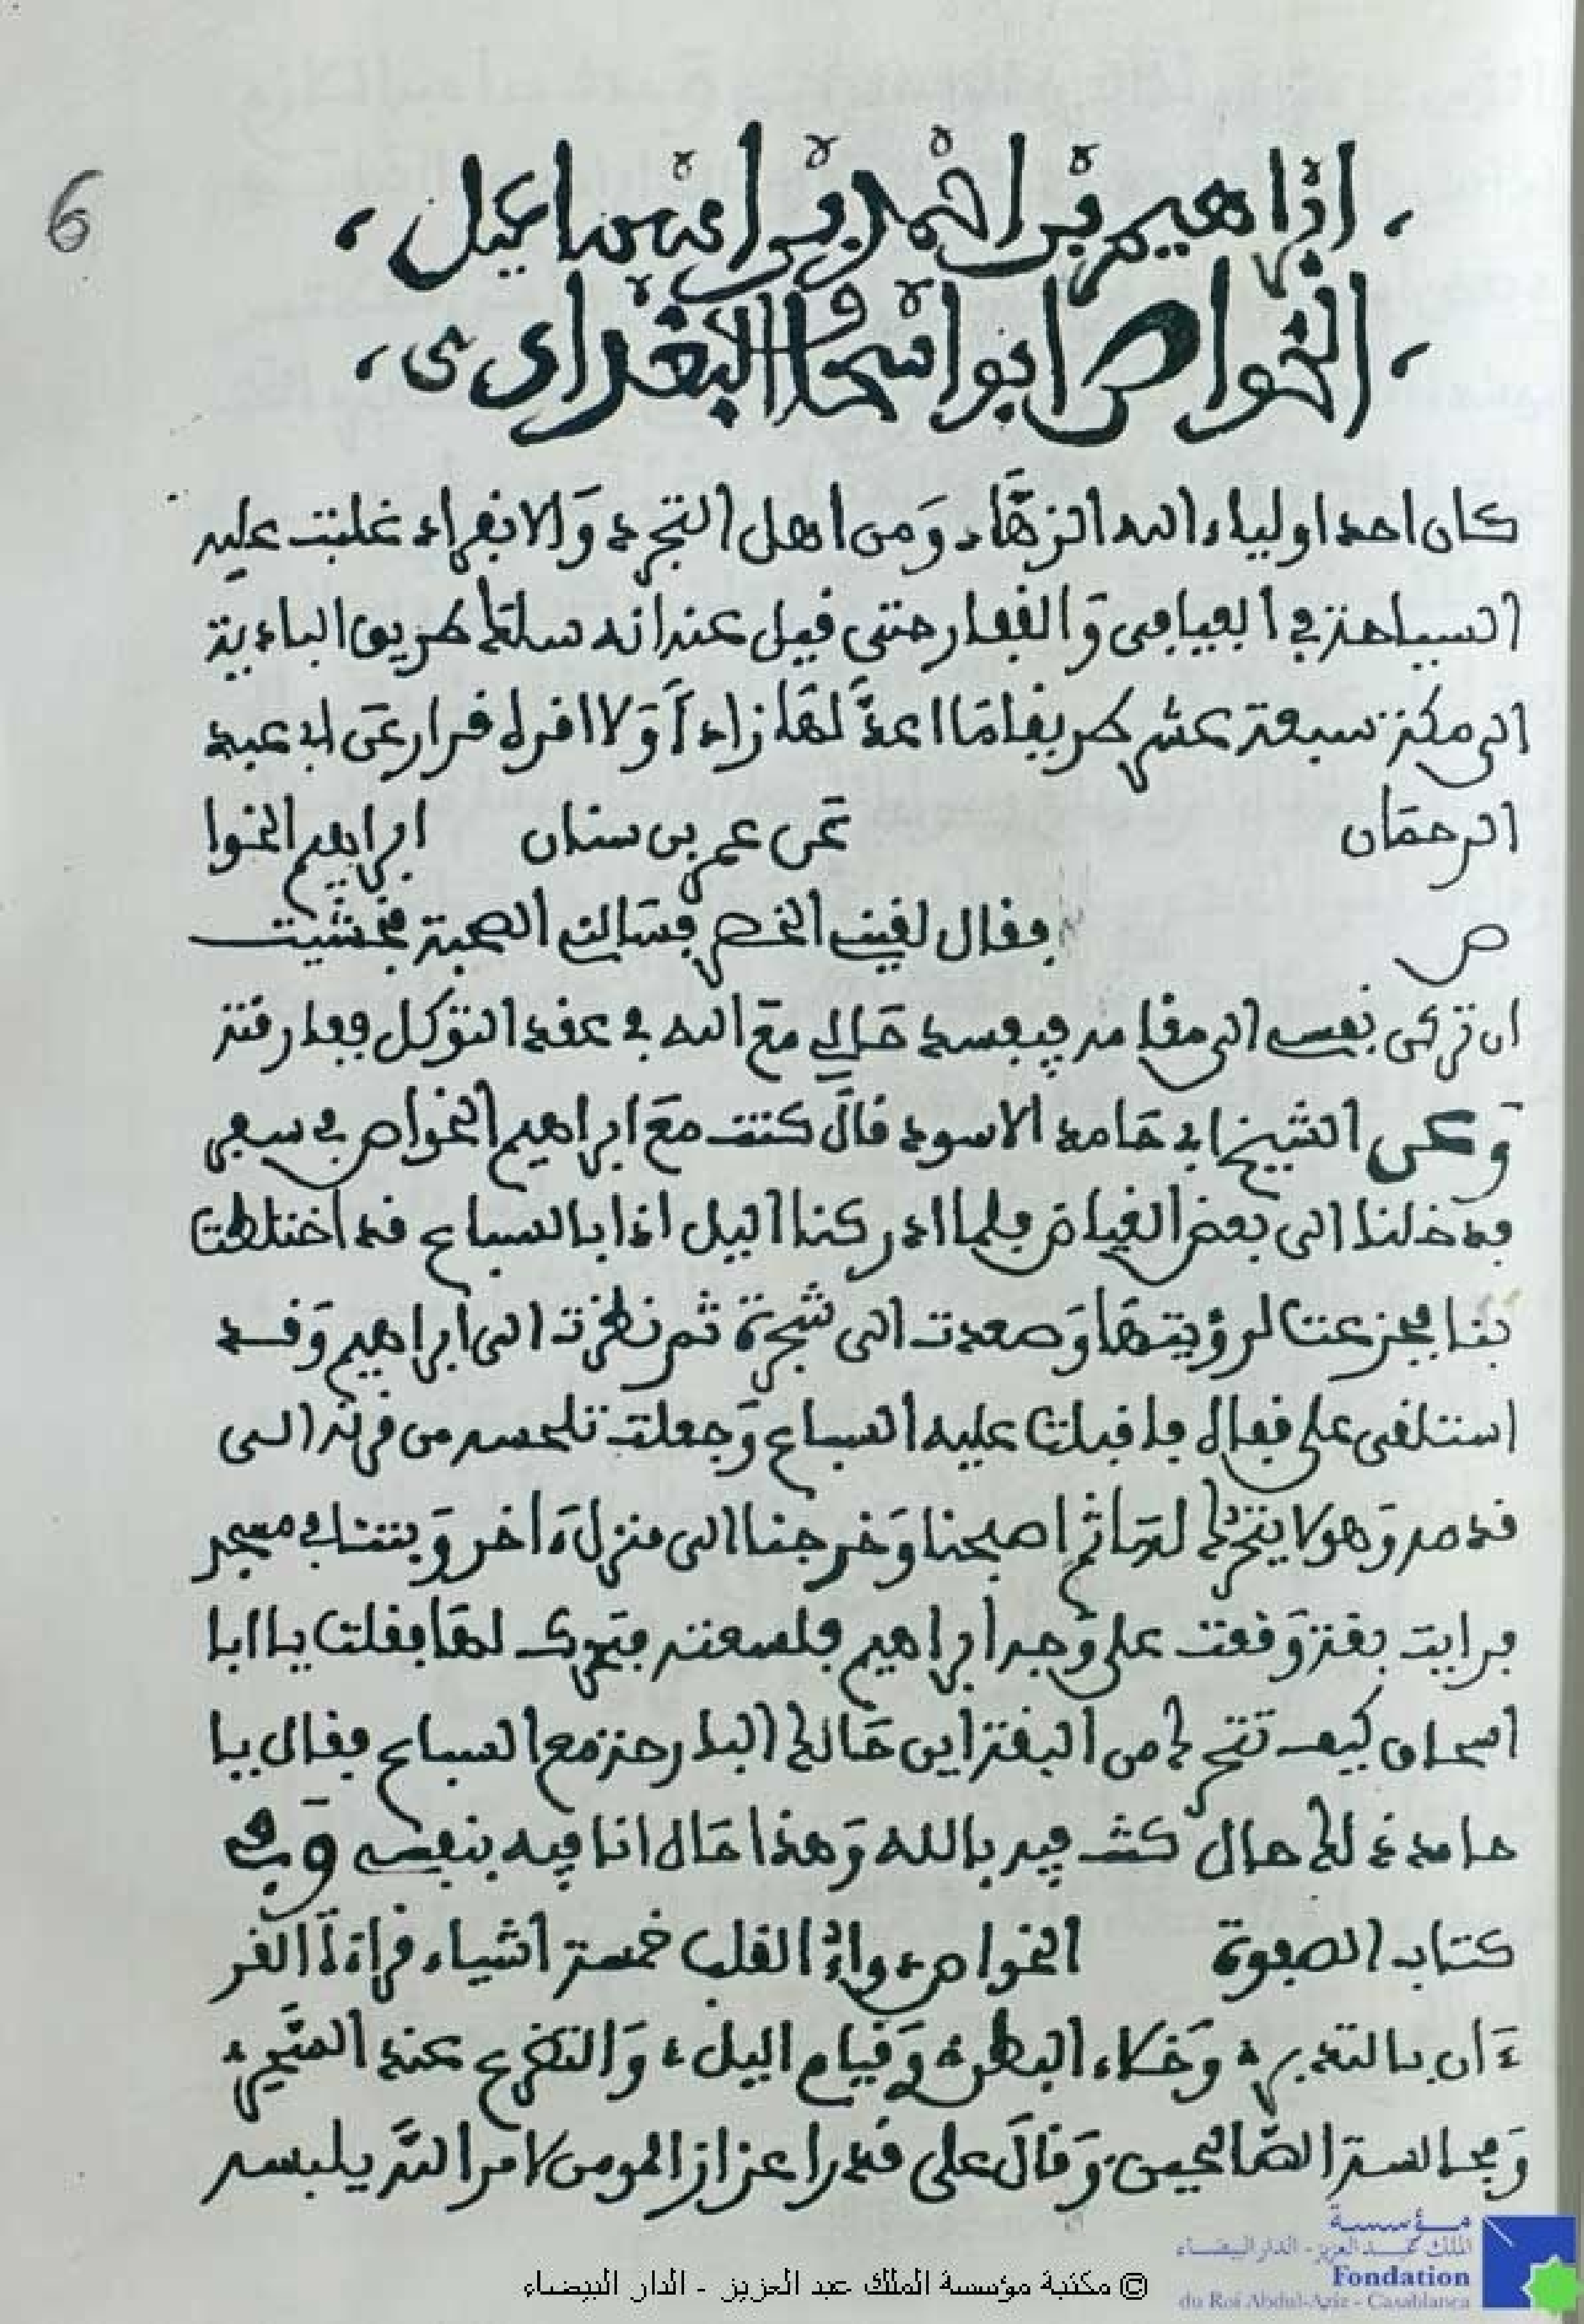 6
، ابراهيم بن احمد بن اسماعيل ،
، الخواص ابو اسحاق البغدادي ،
كان احد اولياء الله الزهَّاد وَمن اهل التجرد وَالانفراد غلبت عليه
السياحة في الفيافي وَالقفار حتى قيل عنه انه سلك طريق البادية
الى مكة سبعة عشر طريقا مَا اعدَّ لهَا زاداً وَلا اقر له قرار عَن ابي عبد
الرحمَان عَن عمر بن سنان ابراهيم الخوا
ص فقال لقيني الخضر فسَالني الصحبة فخشيت
ان تركن نفسي الى مقامه فيفسد حَالي معَ الله في عقد التوكل ففارقته
وَحكى الشيخ ابي حَامد الاسود قالَ كنت معَ ابراهيم الخواص في سفر
فدخلنا الى بعض الغياض فلما ادركنا اليل اذا بالسباع قد اختلطت
بنا فجزعت لرؤيتهَا وَصعدت الى شجرة ثم نظرت الى ابراهيم وَقد
استلقى على قفاه فاقبلت عليه السباع وَجعلت تلحسه من قرنه الى
قدمه وَهو لا يتحرك لهَا ثم اصبحنا وَخرجنا الى منزل ءَاخر وَبتنا في مسجد
فرايت بقة وَقعت على وَجه ابراهيم فلسعته فتحرك لهَا فقلت يا ابا
اسحاق كيف تتحرك من البقة اين حَالك البارحة مع السباع فقال يا
حامد ذلك حال كنت فيه بالله وَهذا حَال انا فيه بنفسي وَفي
كتاب الصفوة الخواص دواء القلب خمسة اشياء قراءة القر
ءَان بالتدبر، وَخلاء البطن، وَقيام اليل، وَالتضرع عند السَّحر،
وَمجالسة الصَّالحين، وَقالَ على قدر اعزاز المومن لامر الله يلبسه
مؤسسة
الملك عبد العزيز - الدار البيضاء
Fondation
du Roi Abdul-Aziz - Casablanca
© مكتبة مؤسسة الملك عبد العزيز - الدار البيضاء